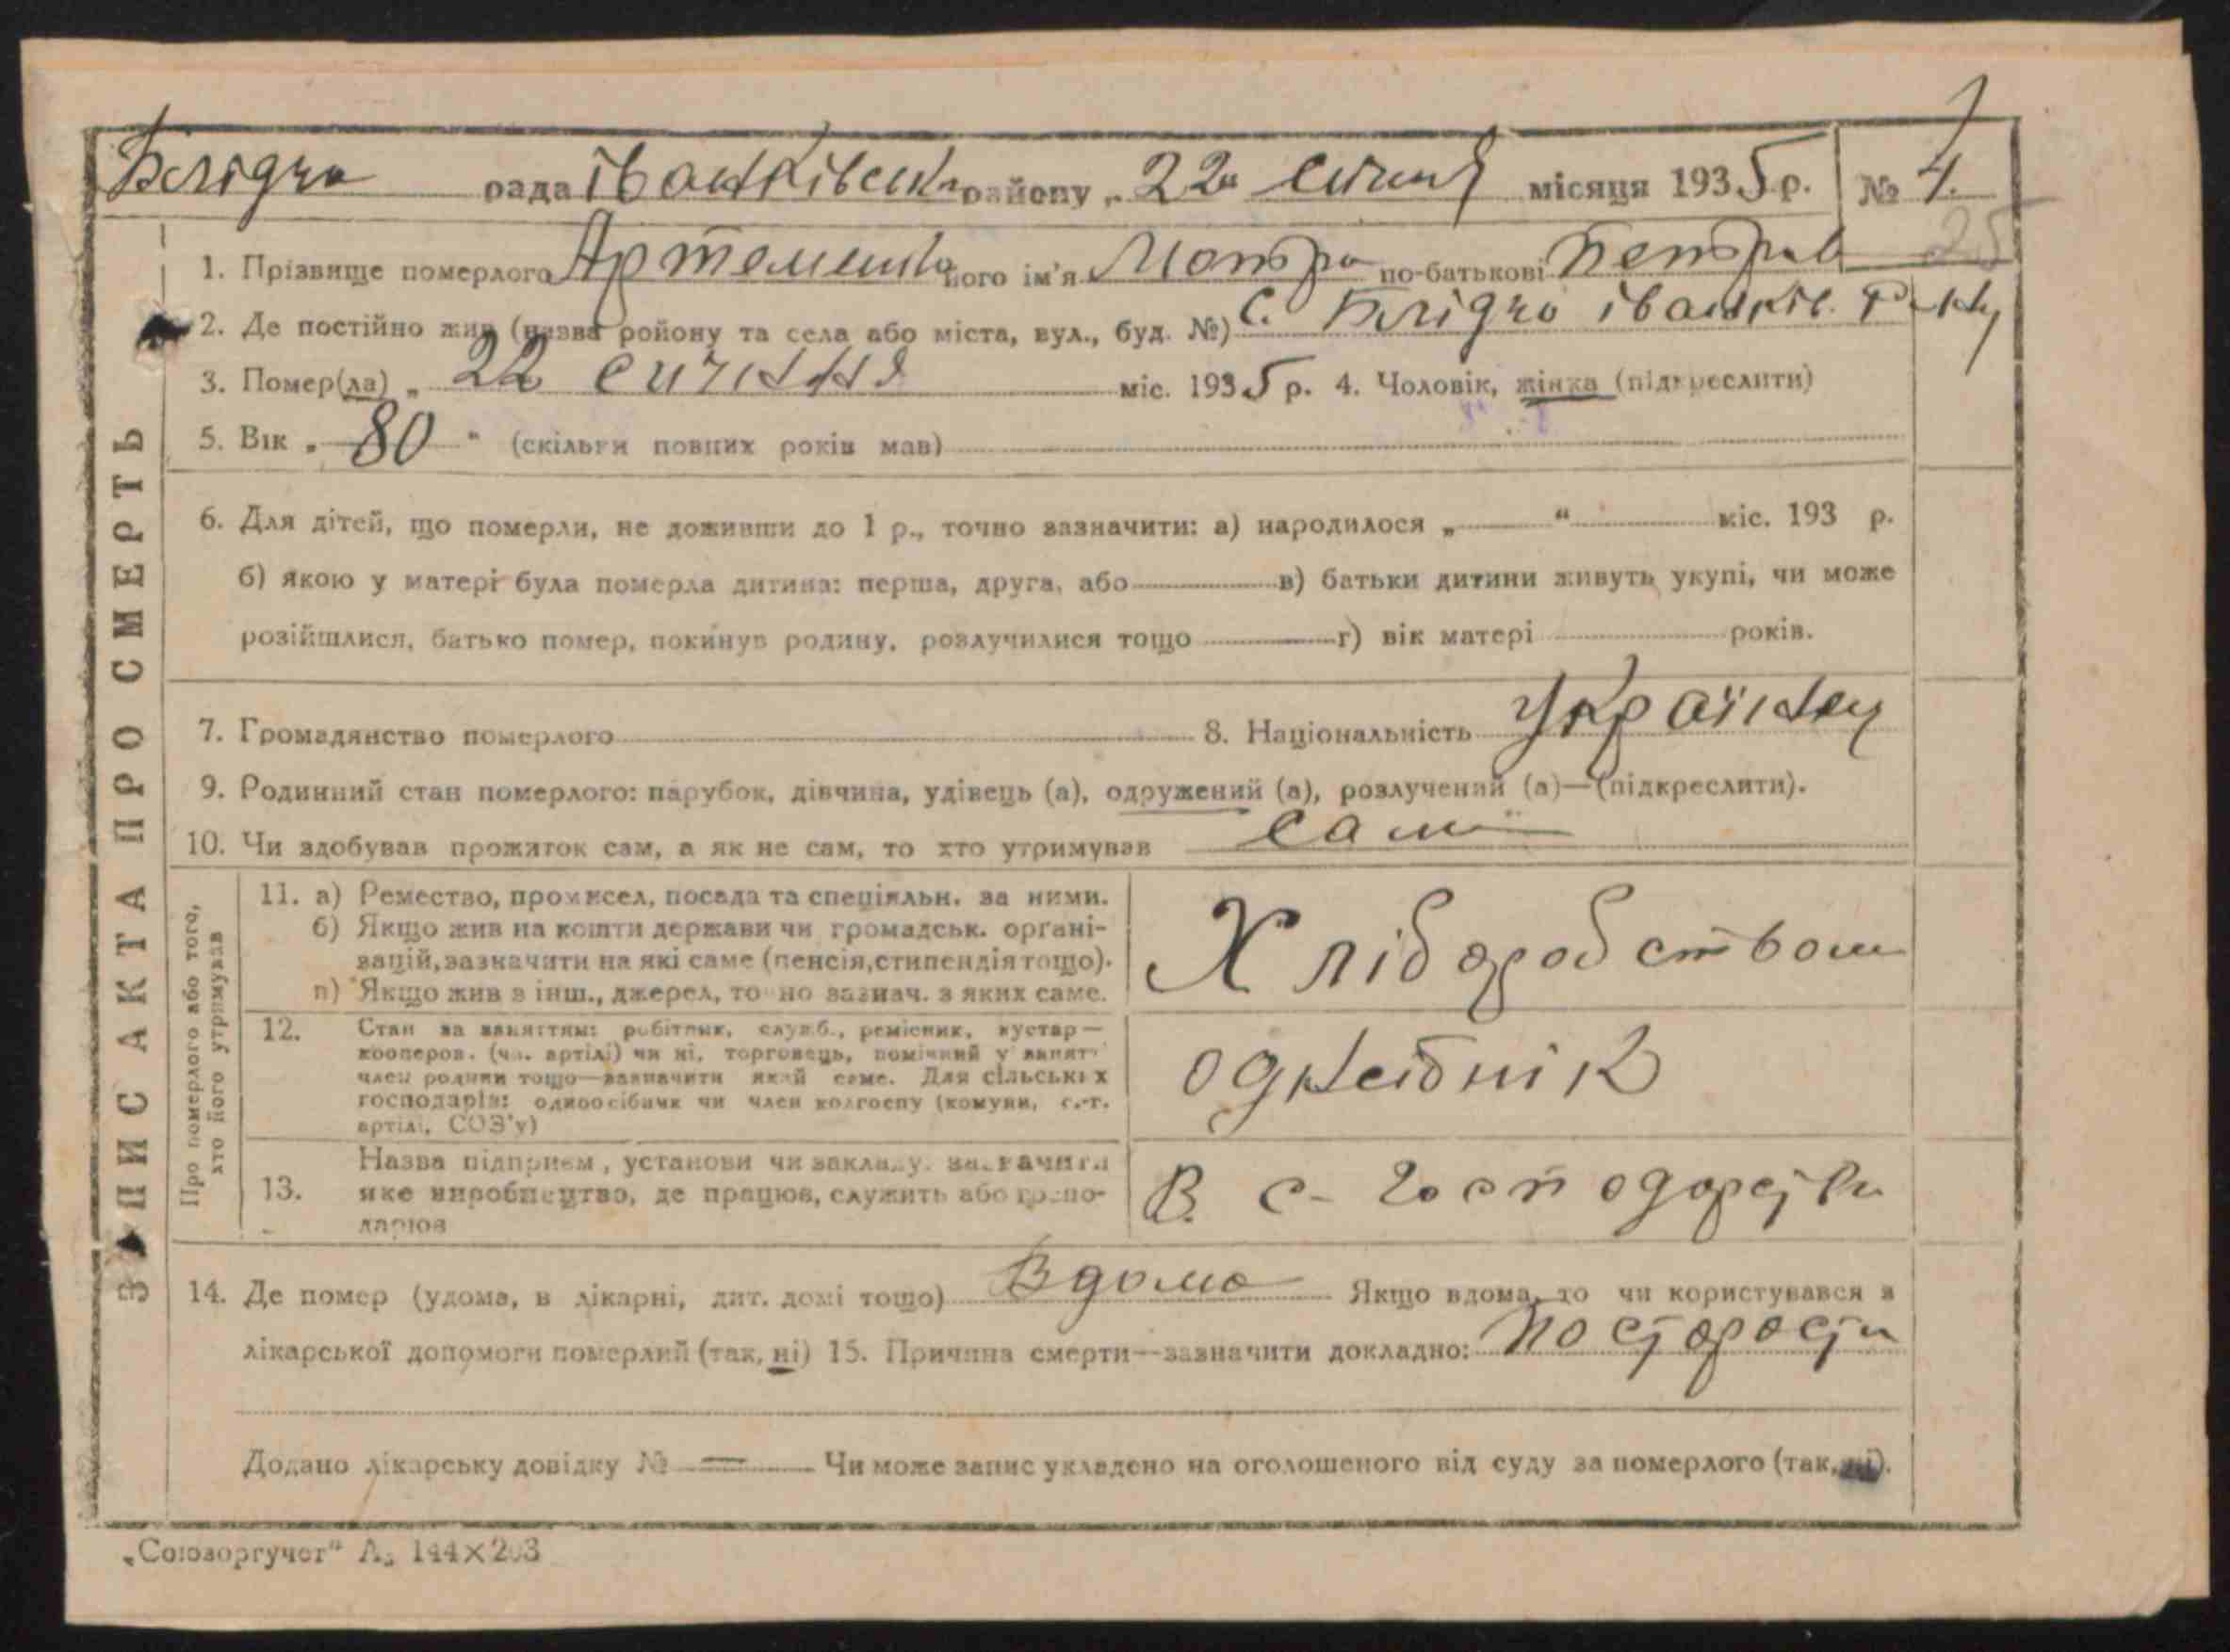 Блідча рада Іванківськ району „22“ січня місяця 1935 р. № 4.
25
1. Прізвище померлого Артеменко його ім'я Мотря по-батькові Петрів
2. Де постійно жив (назваройону та села або міста, вул., буд. №) с. Блідча Іванків. Р-ну
3. Помер(ла) „ 22 січння міс. 1935 р. 4. Чоловік, жінка (підкреслити)
5. Вік „ 80 “ (скільки повних років мав)
6. Для дітей, що померли, не доживши до 1 р., точно зазначити: а) народилося „ “ міс. 193 р.
б) якою у матері була померла дитина: перша, друга, або в) батьки дитини живуть укупі, чи може
розійшлися, батько помер, покинув родину, розлучилися тощо г) вік матері років.
7. Громадянство померлого 8. Національність Українец
9. Родинний стан померлого: парубок, дівчина, удівець (а), одружений (а), розлучений (а)—(підкреслити).
10. Чи здобував прожиток сам, а як не сам, то хто утримував сам
ЗАПИС АКТА ПРО СМЕРТЬ
Про померлого або того,
хто його утримував
11. а) Ремество, промисел, посада та спеціяльн. за ними.
б) Якщо жив на кошти держави чи громадськ. органі-
зацій, зазначити на які саме (пенсія, стипендія тощо).
в) Якщо жив з інш., джерел, точно зазнач. з яких саме.
Хліборобством
12. Стан за заняттям: робітник, служб., ремісник, кустар—
кооперов. (чл. артілі) чи ні, торговець, помічний у занятті
член родини тощо—зазначити який саме. Для сільських
господарів: одноосібник чи член колгоспу (комуни, с.-г.
артілі, СОЗ'у)
однесібнік
13. Назва підприєм, установи чи закладу. зазначити
яке виробництво, де працюв, служить або госпо-
дарюв
В с-господарстві
14. Де помер (удома, в лікарні, дит. домі тощо) Вдома Якщо вдома, то чи користувався з
лікарської допомоги померлий (так, ні) 15. Причина смерти—зазначити докладно: По старості
Додано лікарську довідку № — Чи може запис укладено на оголошеного від суду за померлого (так, ні).
„Союзоргучет“ А₅ 144×203